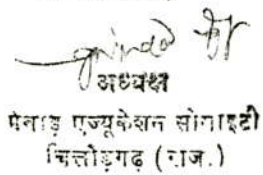 अध्यक्ष
मेवाड़ एज्यूकेशन सोसाइटी
चित्तोड़गढ़ (राज.)